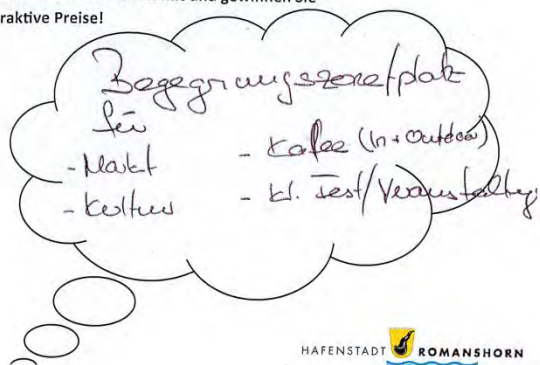 mit und gewinnen Sie
raktive Preise!
Begegnungszone/platz
für
- Markt - Kafee (In + Outdoor)
- Kultur - kl. Fest/Veranstaltg.
HAFENSTADT ROMANSHORN